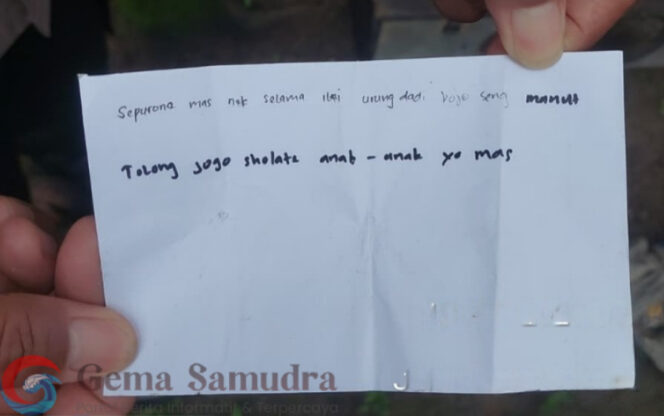 Sepurone mas nek selama iki urung dadi bojo seng manut
Tolong jogo sholate anak - anak yo mas
Gema Samudra
Informatif & Terpercaya